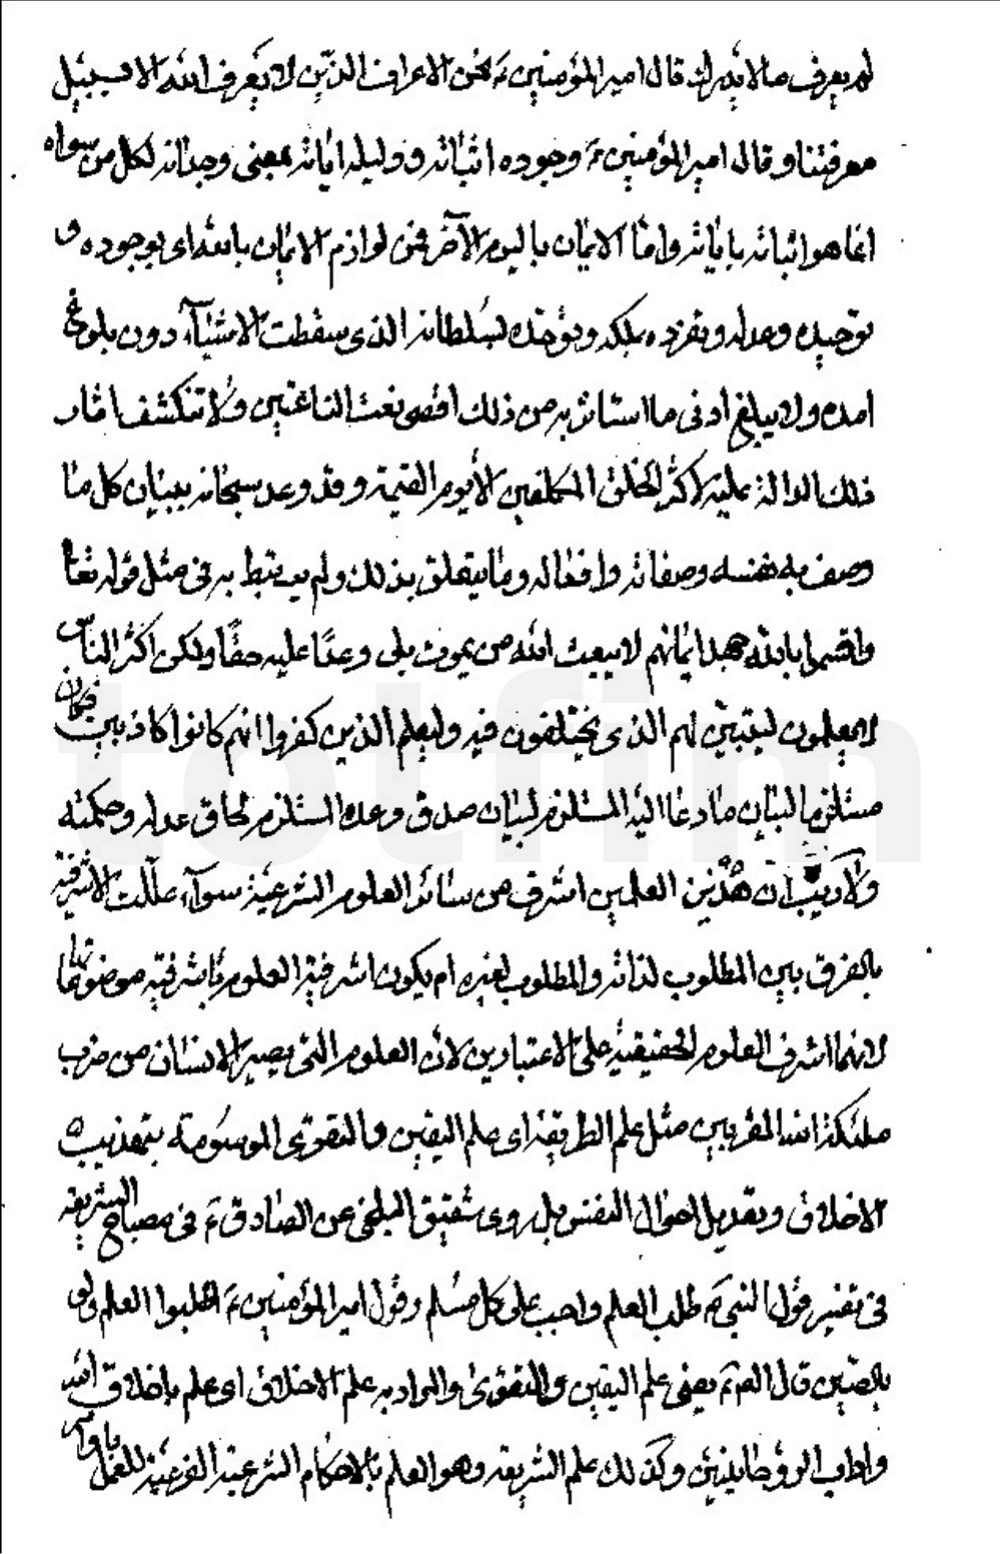 لم يعرف ما لا يدرك قال امير المؤمنين ع نحن الاعراف الذين لا يعرف الله الا بسبيل
معرفتنا وقال امير المؤمنين ع وجوده اثباته ودليله اياته بمعنى وجدانه لكل من سواه
انما هو اثباته باياته واما الايمان باليوم الآخر فمن لوازم الايمان بالله اى بوجوده و
توحيده وعدله وتفرده بملكه وتوحده بسلطانه الذى سقطت الاشياء دون بلوغ
امده ولا يبلغ ادنى ما استاثر به من ذلك اقصى نعت الناعتين ولا تنكشف اثار
ذلك الدالة عليه لاكثر الخلق المكلفين الا يوم القيمة وقد وعد سبحانه ببيان كل ما
وصف به نفسه وصفاته وافعاله وما يتعلق بذلك ولم يعتبط به فى مثل قوله تعا
واقسموا بالله جهد ايمانهم لا يبعث الله من يموت بلى وعدا عليه حقا ولكن اكثر الناس
لا يعلمون ليتبين لهم الذى يختلفون فيه وليعلم الذين كفروا انهم كانوا كاذبين فكان
مستلزما لبيان ما دعا اليه المستلزم لبيان صدق وعده المستلزم لحاق عدله وحكمته
ولا ريب ان هذين العلمين اشرف من سائر العلوم الشرعية سواء عللت الاشرفية
بالفرق بين المطلوب لذاته والمطلوب لغيره ام يكون اشرفية العلوم باشرفية موضوعاتها
لانهما اشرف العلوم الحقيقية على الاعتبارين لان العلوم التى يصير الانسان من حزب
ملئكة الله المقربين مثل علم الطريقة اى علم اليقين والتقوى الموسومة بتهذيب
الاخلاق وتعديل احوال النفس بل روى شقيق البلخى عن الصادق ع فى مصباح الشريعة
فى تفسير قول النبى ص طلب العلم واجب على كل مسلم وقول امير المؤمنين ع اطلبوا العلم ولو
بالصين قال ع يعنى علم اليقين والتقوى والمراد به علم الاخلاق اى علم باخلاق الله
واداب الروحانيين وكذلك علم الشريعة وهو العلم بالاحكام الشرعية الفرعية للعمل
totfim